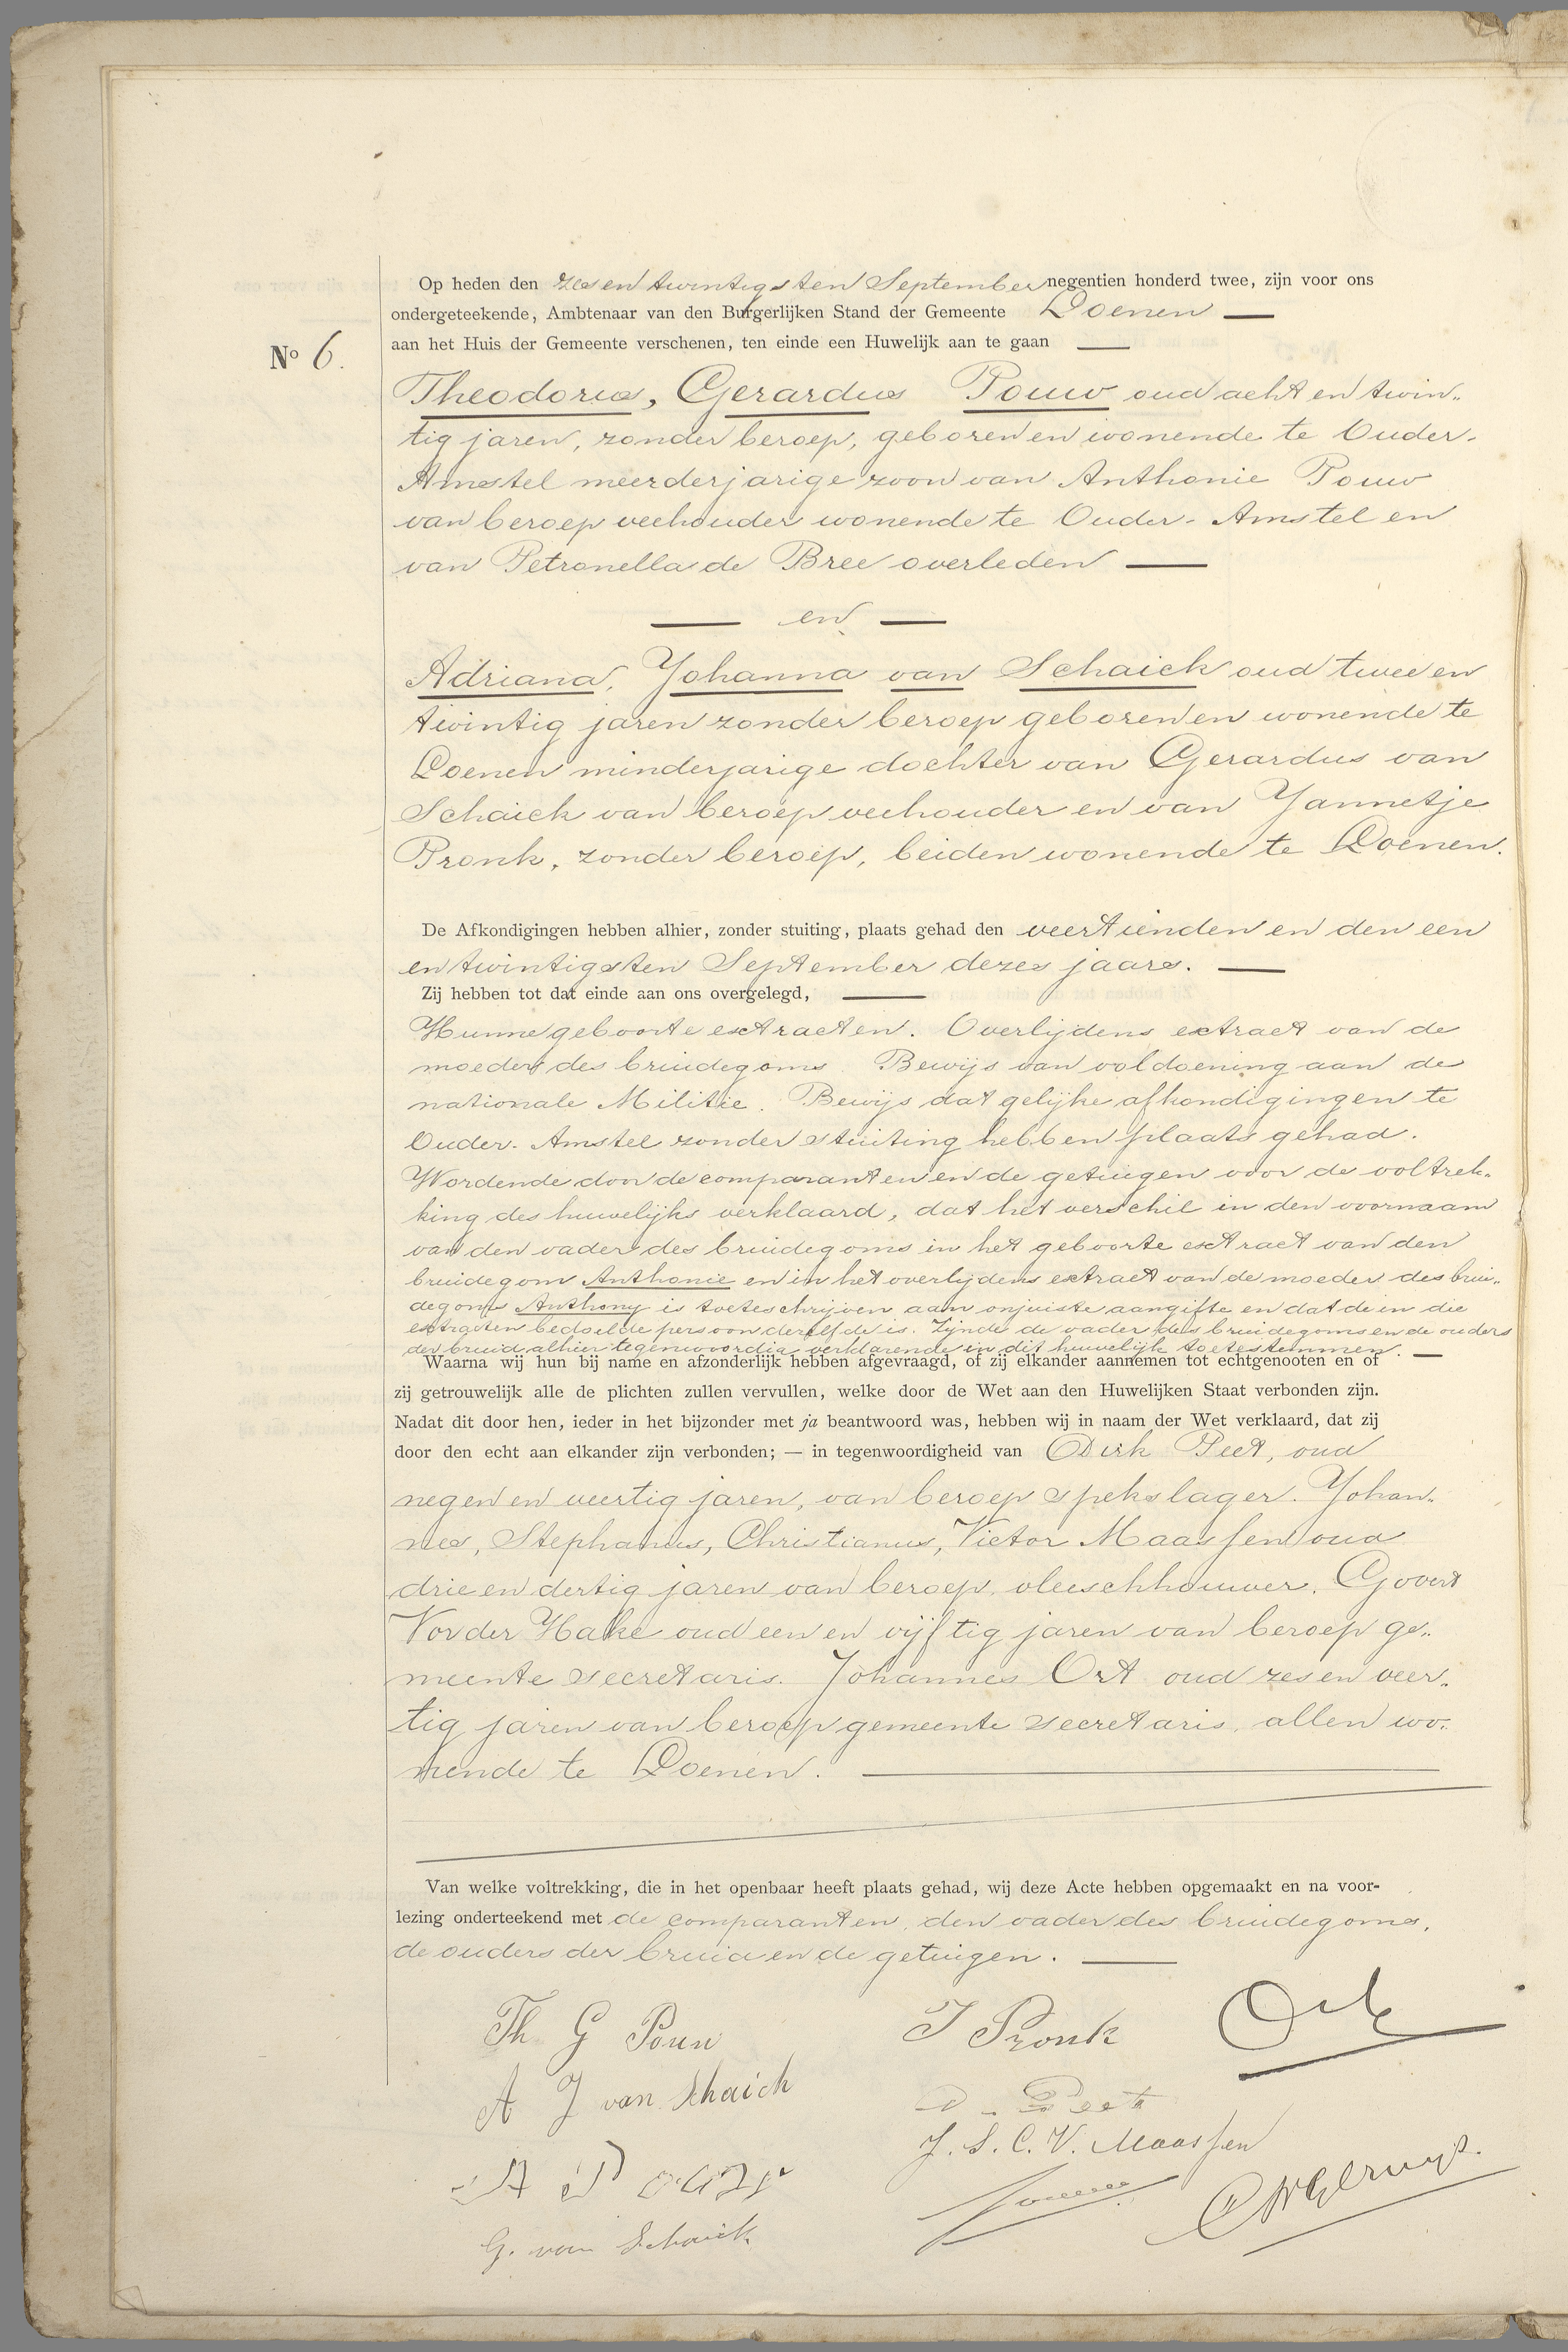 Op heden den zesen twintigsten September negentien honderd twee, zijn voor ons
ondergeteekende, Ambtenaar van den Burgerlijken Stand der Gemeente Loenen —
No 6.
aan het Huis der Gemeente verschenen, ten einde een Huwelijk aan te gaan —
Theodorus, Gerardus Pouw oud acht en twin-
tig jaren, zonder beroep, geboren en wonende te Ouder-
Amstel meerderjarige zoon van Anthonie Pouw
van beroep veehouder wonende te Ouder-Amstel en
van Petronella de Bree overleden —
— en —
Adriana, Johanna van Schaick oud twee en
twintig jaren zonder beroep geboren en wonende te
Loenen minderjarige dochter van Gerardus van
Schaick van beroep veehouder en van Jannetje
Pronk, zonder beroep, beiden wonende te Loenen.
De Afkondigingen hebben alhier, zonder stuiting, plaats gehad den veertienden en den een
en twintigsten September dezes jaars. —
Zij hebben tot dat einde aan ons overgelegd, —
Hunne geboorte extracten. Overlijdens extract van de
moeder des bruidegoms. Bewijs van voldoening aan de
nationale Militie. Bewijs dat gelijke afkondigingen te
Ouder-Amstel zonder stuiting hebben plaats gehad.
Wordende door de comparanten en de getuigen voor de voltrek-
king des huwelijks verklaard, dat het verschil in den voornaam
van den vader des bruidegoms in het geboorte extract van den
bruidegom Anthonie en in het overlijdens extract van de moeder des brui-
degoms Anthony is toeteschrijven aan onjuiste aangifte en dat de in die
extracten bedoelde persoon dezelfde is. Zijnde de vader des bruidegoms en de ouders
der bruid alhier tegenwoordig verklarende in dit huwelijk toetestemmen. —
Waarna wij hun bij name en afzonderlijk hebben afgevraagd, of zij elkander aannemen tot echtgenooten en of
zij getrouwelijk alle de plichten zullen vervullen, welke door de Wet aan den Huwelijken Staat verbonden zijn.
Nadat dit door hen, ieder in het bijzonder met ja beantwoord was, hebben wij in naam der Wet verklaard, dat zij
door den echt aan elkander zijn verbonden; — in tegenwoordigheid van Dirk Peet, oud
negen en veertig jaren, van beroep spekslager. Johan-
nes, Stephanus, Christianus, Victor Maassen oud
drie en dertig jaren van beroep vleeschhouwer. Govert
Vorder Hake oud een en vijftig jaren van beroep ge-
meente secretaris. Johannes Ort oud zes en veer-
tig jaren van beroep gemeente secretaris, allen wo-
nende te Loenen. —
Van welke voltrekking, die in het openbaar heeft plaats gehad, wij deze Acte hebben opgemaakt en na voor-
lezing onderteekend met de comparanten, den vader des bruidegoms,
de ouders der bruid en de getuigen. —
Th G Pouw
J Pronk
Ort
A J van Schaick
D. Peet
J. S. C. V. Maassen
A Pouw
G. van Schaick